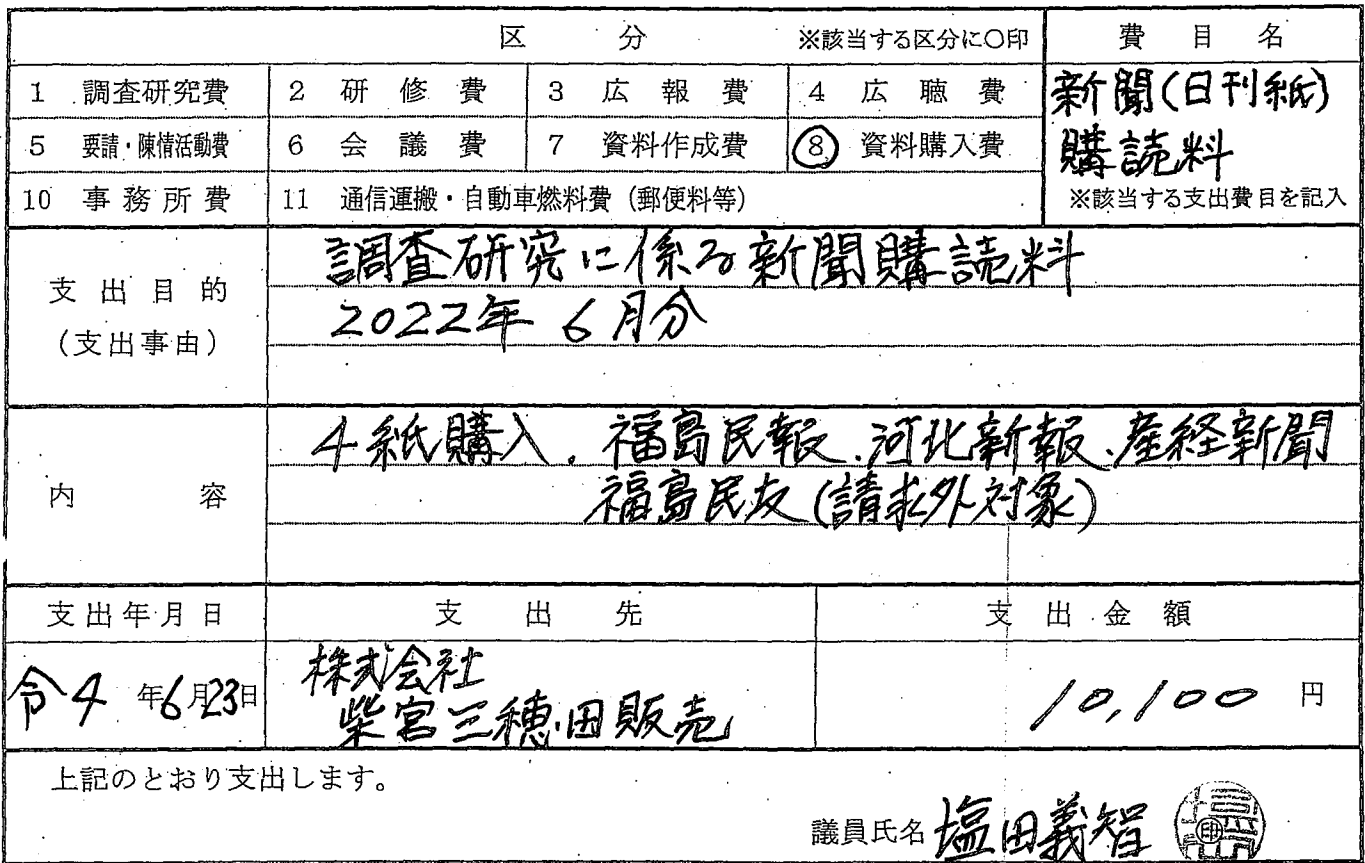 区分 ※該当する区分に〇印 費目名
1 調査研究費 2 研修費 3 広報費 4 広聴費 新聞(日刊紙)
5 要請・陳情活動費 6 会議費 7 資料作成費 8 資料購入費 購読料
10 事務所費 11 通信運搬・自動車燃料費(郵便料等) ※該当する支出費目を記入
支出目的
(支出事由)
調査研究に係る新聞購読料
2022年6月分
内容
4紙購入、福島民報、河北新報、産経新聞
福島民友(請求外対象)
支出年月日 支出先 支出金額
令4年6月23日
株式会社
柴宮三穂田販売
10,100円
上記のとおり支出します。
議員氏名 塩田義智 印